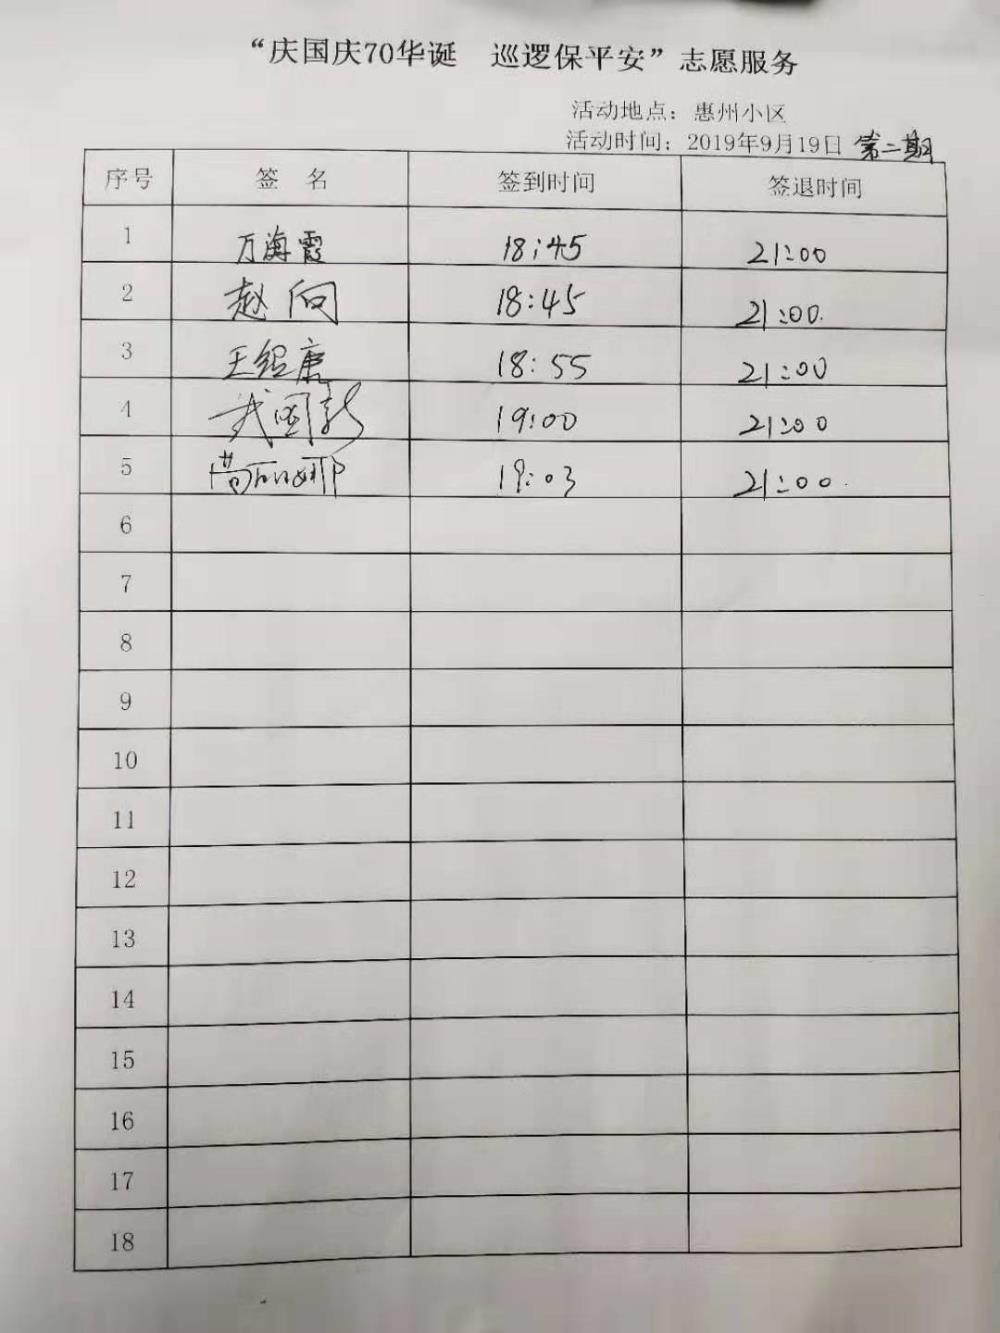 “庆国庆70华诞 巡逻保平安”志愿服务
活动地点：惠州小区
活动时间：2019年9月19日 第二期
序号 签 名 签到时间 签退时间
1 万海霞 18:45 21:00
2 赵向 18:45 21:00.
3 王绍康 18:55 21:00
4 武国新 19:00 21:00
5 19:03 21:00.
6
7
8
9
10
11
12
13
14
15
16
17
18